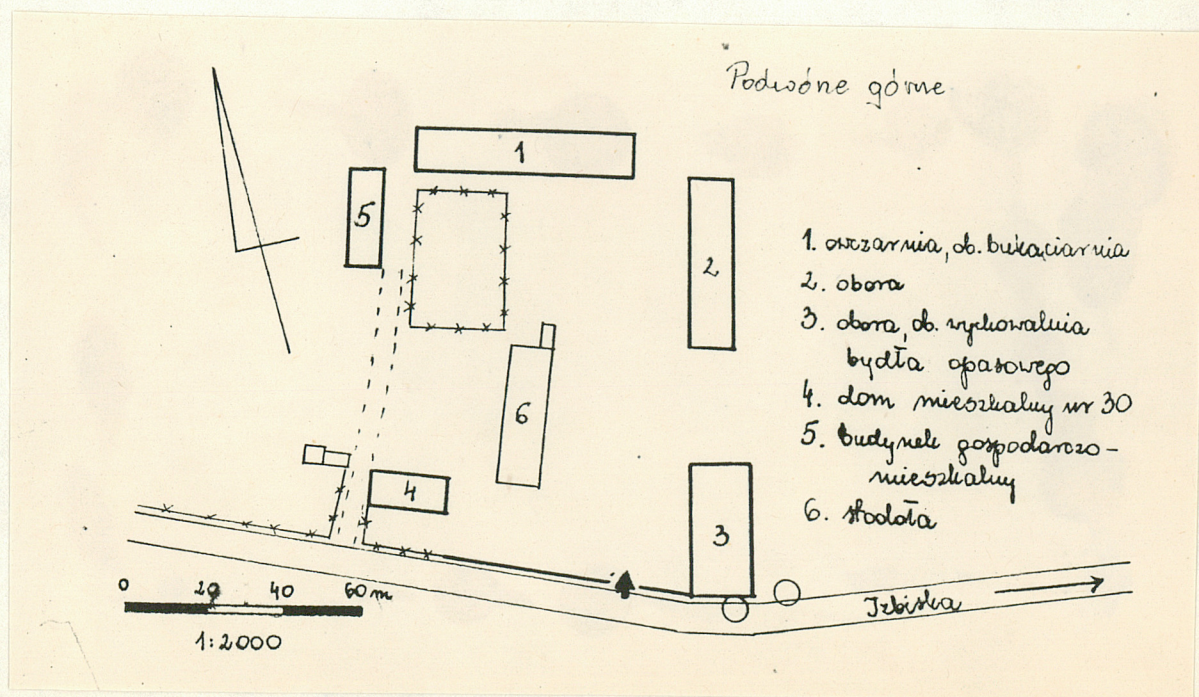 Podwóne górne
1
5
2
6
4
3
1. owczarnia, ob. bukaciarnia
2. obora
3. obora, ob. wychowalnia
bydła opasowego
4. dom mieszkalny nr 30
5. budynek gospodarczo-
mieszkalny
6. stodoła
0 20 40 60 m
1:2000
Izbiska